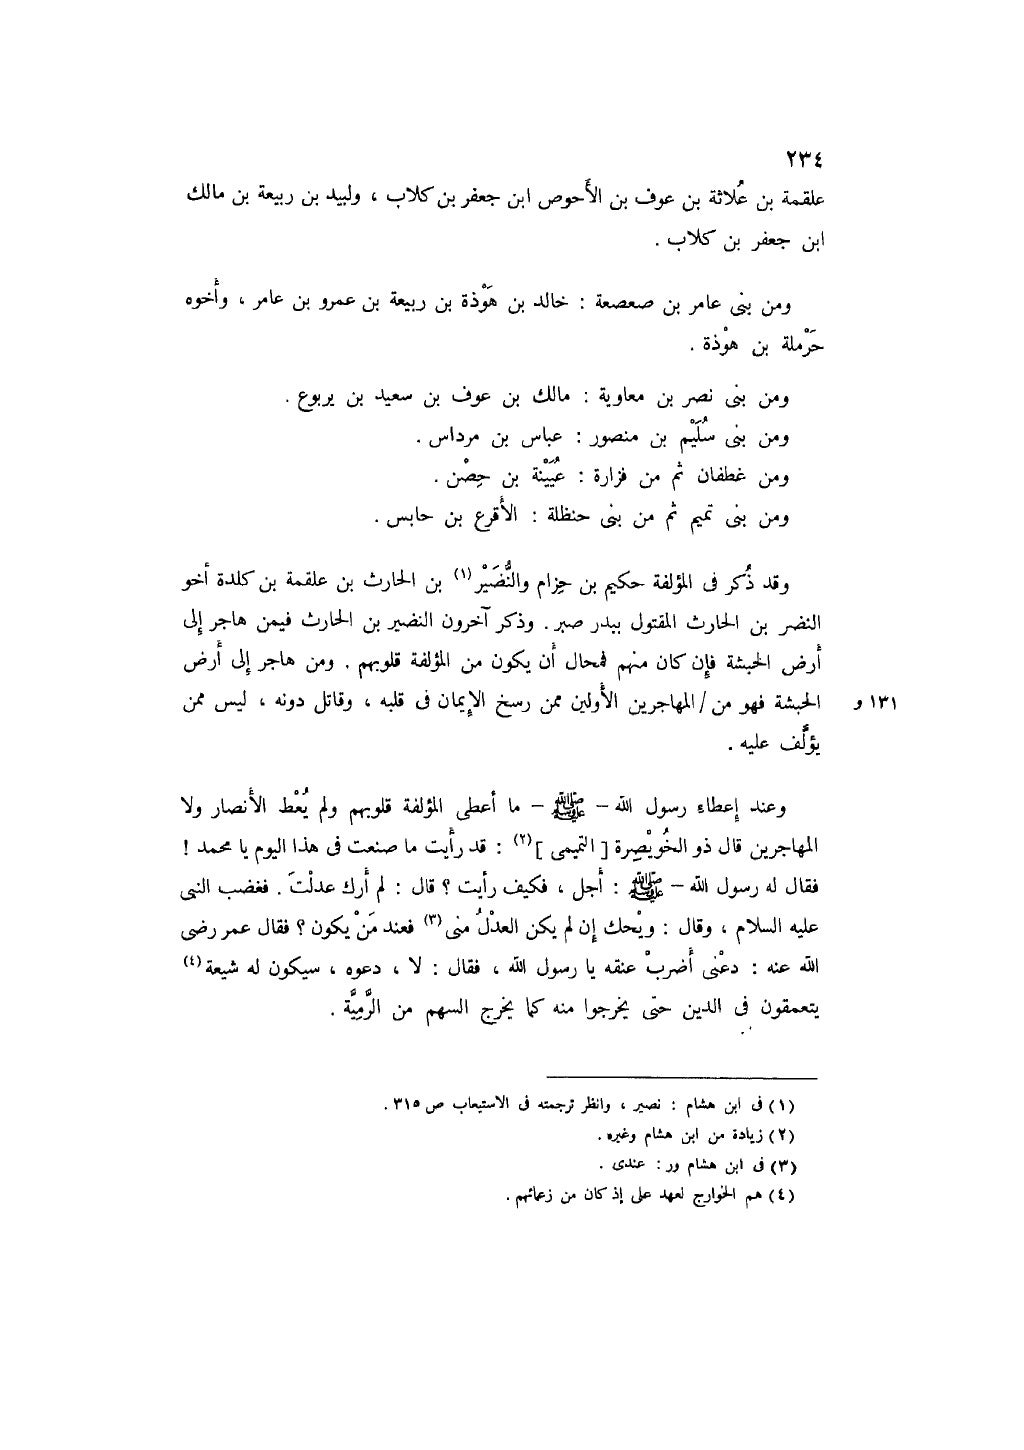 ٢٣٤
علقمة بن عُلاثة بن عوف بن الأَحوص ابن جعفر بن كلاب ، ولبيد بن ربيعة بن مالك
ابن جعفر بن كلاب .
ومن بنى عامر بن صعصعة : خالد بن هَوْذة بن ربيعة بن عمرو بن عامر ، وأَخوه
حَرْملة بن هوْذة .
ومن بنى نصر بن معاوية : مالك بن عوف بن سعيد بن يربوع .
ومن بنى سُلَيْم بن منصور : عباس بن مرداس .
ومن غطفان ثم من فزارة : عُيَيْنة بن حِصْن .
ومن بنى تميم ثم من بنى حنظلة : الأَقرع بن حابس .
وقد ذُكر فى المؤلفة حكيم بن حِزام والنُّضَيْر (١) بن الحارث بن علقمة بن كلدة أَخو
النضر بن الحارث المقتول ببدر صبر . وذكر آخرون النضير بن الحارث فيمن هاجر إِلى
أَرض الحبشة فإِن كان منهم فمحال أَن يكون من المؤلفة قلوبهم . ومن هاجر إِلى أَرض
الحبشة فهو من / المهاجرين الأَولين ممن رسخ الإِيمان فى قلبه ، وقاتل دونه ، ليس ممن ١٣١ و
يؤلَّف عليه .
وعند إِعطاءِ رسول الله – ﷺ – ما أَعطى المؤلفة قلوبهم ولم يُعْط الأَنصار ولا
المهاجرين قال ذو الخُويْصِرة [ التميمى ] (٢) : قد رأَيت ما صنعت فى هذا اليوم يا محمد !
فقال له رسول الله – ﷺ : أَجل ، فكيف رأَيت ؟ قال : لم أَرك عدلْتَ . فغضب النبى
عليه السلام ، وقال : ويْحك إِن لم يكن العدْلُ منى (٣) فعند مَنْ يكون ؟ فقال عمر رضى
الله عنه : دعْنى أَضربْ عنقه يا رسول الله ، فقال : لا ، دعوه ، سيكون له شيعة (٤)
يتعمقون فى الدين حتّى يخرجوا منه كما يخرج السهم من الرَّمِيَّة .
(١) فى ابن هشام : نصير ، وانظر ترجمته فى الاستيعاب ص ٣١٥ .
(٢) زيادة من ابن هشام وغيره .
(٣) فى ابن هشام ور : عندى .
(٤) هم الخوارج لعهد على إذ كان من زعمائهم .